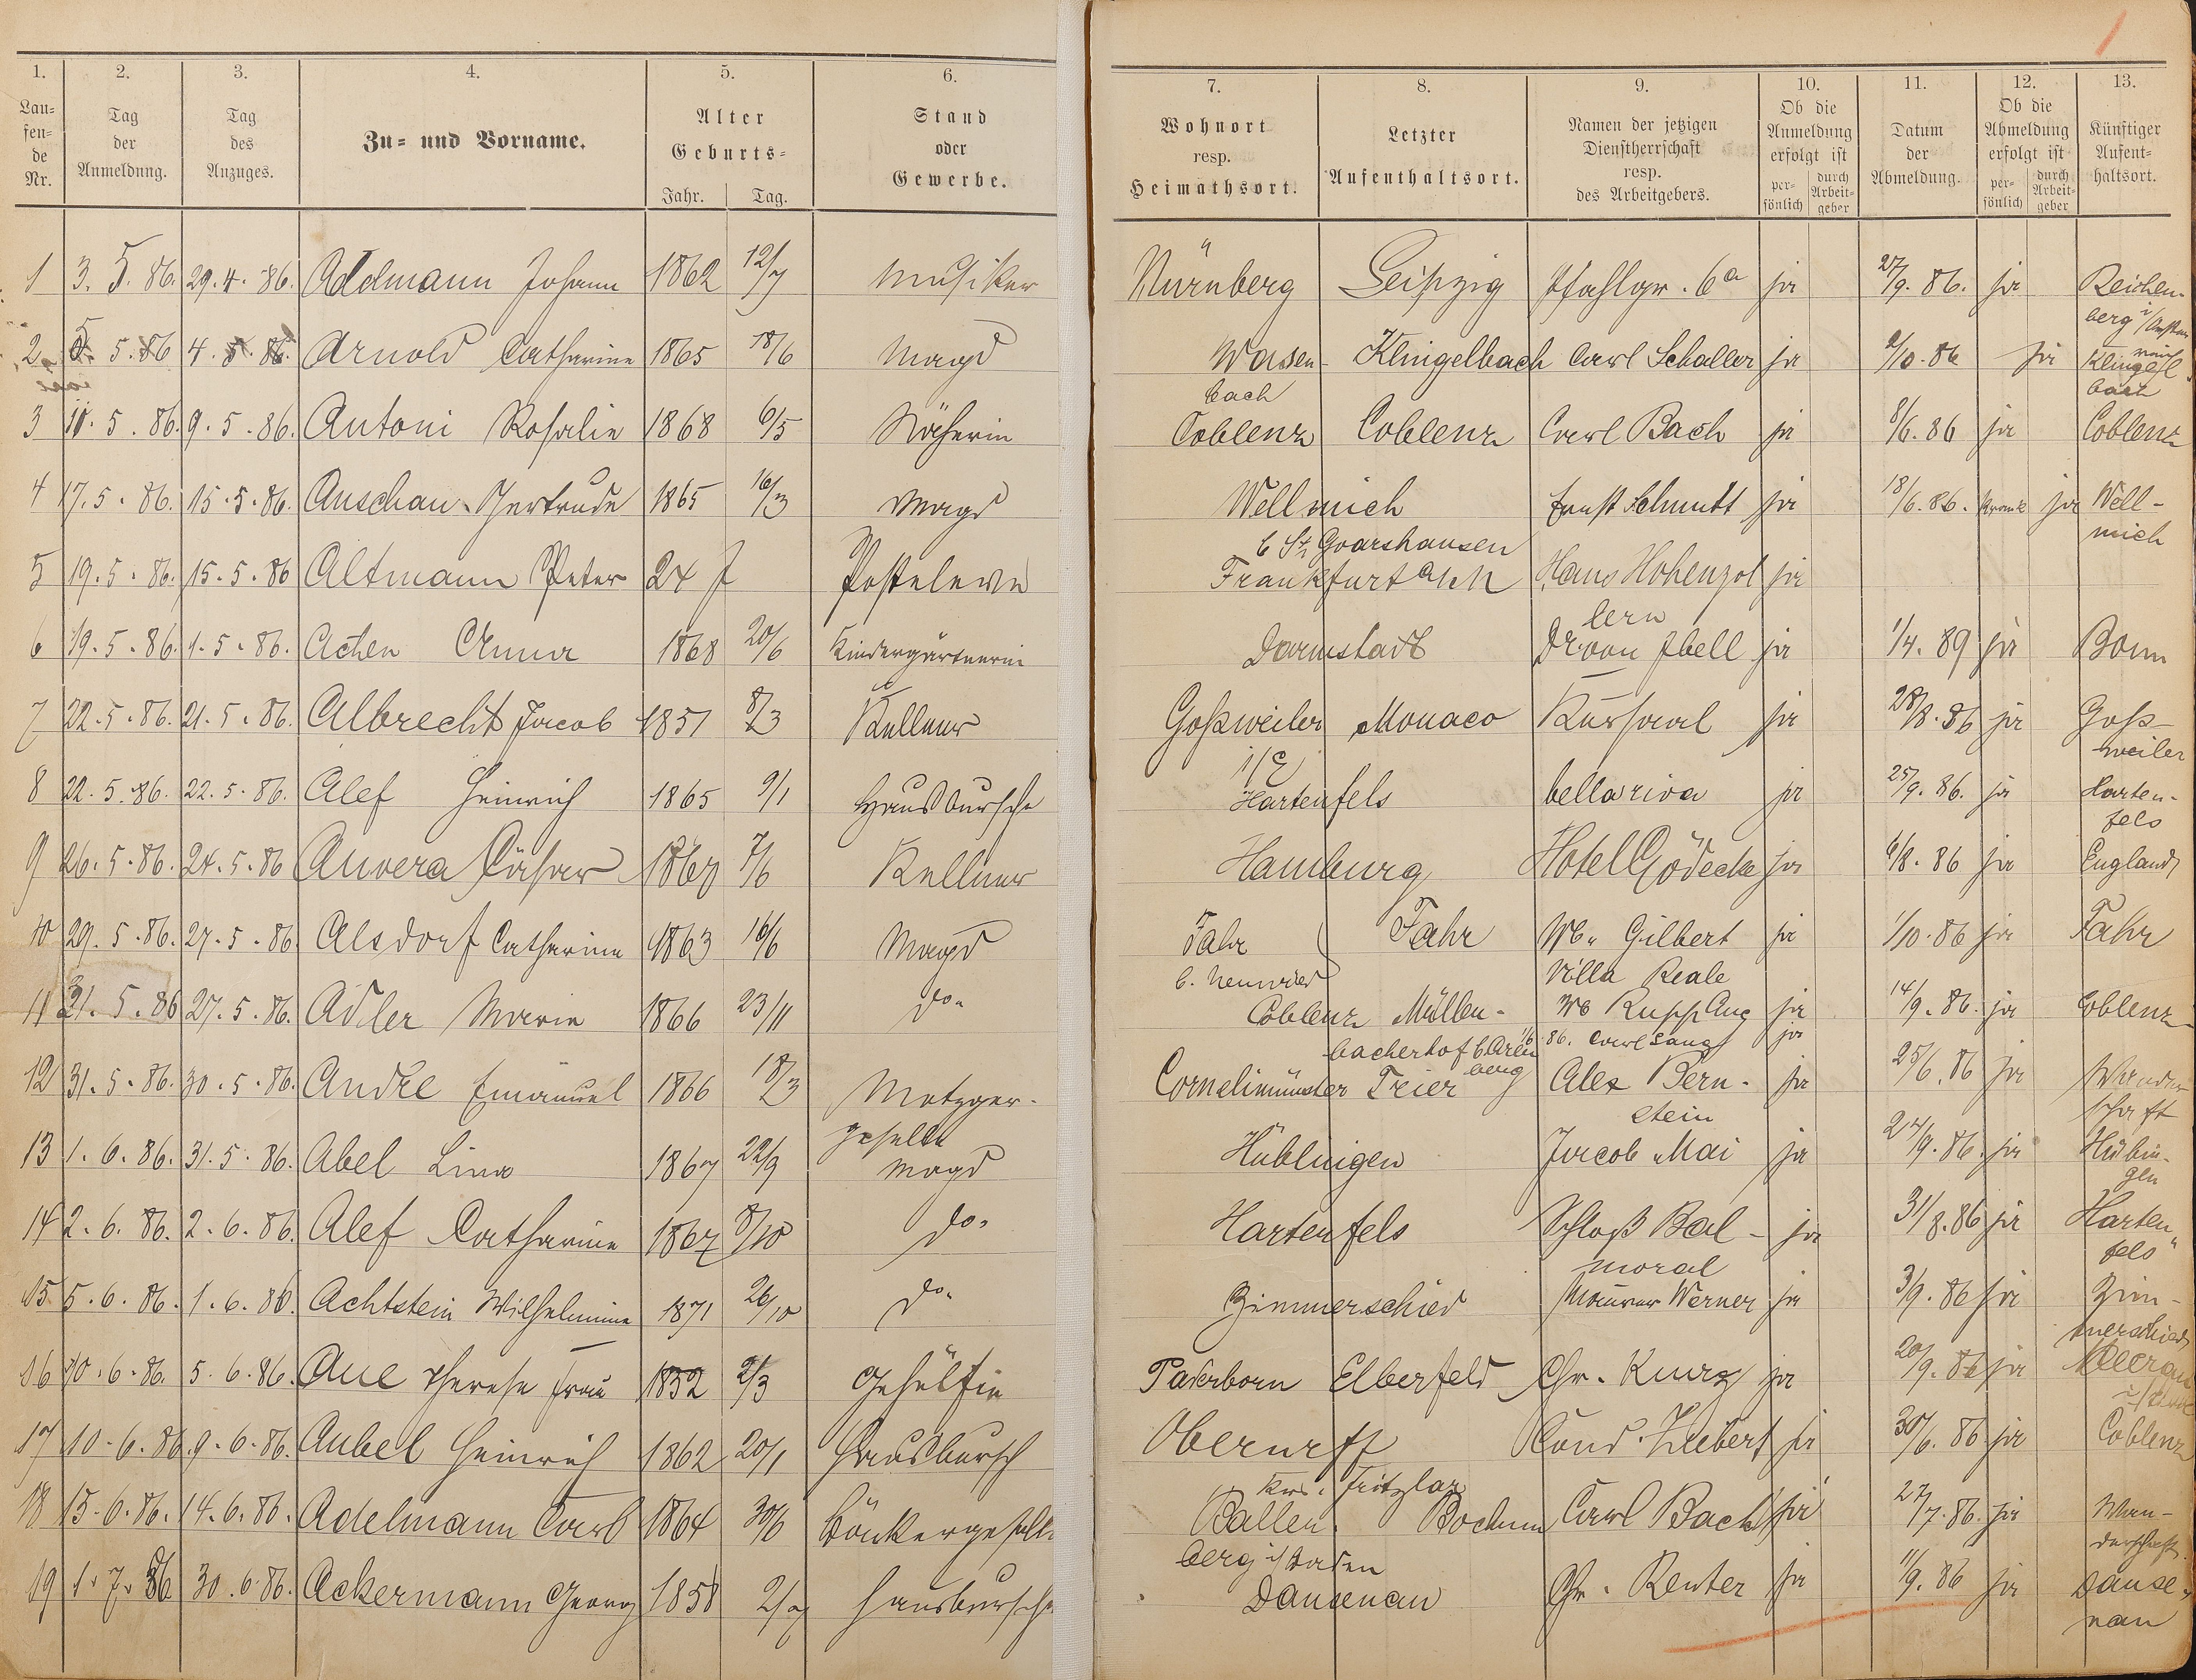 1
1. 2. 3. 4. 5. 6. 7. 8. 9. 10. 11. 12. 13.
Lau=
fen=
de
Nr.
Tag
der
Anmeldung.
Tag
des
Anzuges.
Zu= und Vorname.
Alter
Geburts=
Jahr. Tag.
Stand
oder
Gewerbe.
Wohnort
resp.
Heimathsort.
Letzter
Aufenthaltsort.
Namen der jetzigen
Dienstherrschaft
resp.
des Arbeitgebers.
Ob die
Anmeldung
erfolgt ist
per=
sönlich
durch
Arbeit=
geber
Datum
der
Abmeldung.
Ob die
Abmeldung
erfolgt ist
per=
sönlich
durch
Arbeit=
geber
Künftiger
Aufent=
haltsort.
1 3. 5. 86. 29. 4. 86. Adelmann Johann 1862 12/7 Musiker Nürnberg Leipzig Pfahlgr. 6a ja 27/9. 86. ja Reichen-
berg
2 5. 5. 86 4. 5. 86. Arnold Catharine 1865 18/6 Magd Wasen- Klingelbach Carl Schaller ja /10. 86 ja Klingel
bach bach
3 11. 5. 86. 9. 5. 86. Antoni Rosalie 1868 6/5 Näherin Coblenz Coblenz Carl Bach ja 8/6. 86 ja Coblenz
4 17. 5. 86. 15. 5. 86. Anschau Gertrude 1865 16/3 Magd Wellmich Ernst Schmitt ja 18/6. 86. krank ja Well-
b St. Goarshausen mich
5 19. 5. 86. 15. 5. 86 Altmann Peter 24 J Posteleve Frankfurt a/M Haus Hohenzol ja
lern
6 19. 5. 86. 1. 5. 86. Achen Anna 1868 20/6 Kindergärtnerin Darmstadt Dr von Ibell ja 1/4. 89 ja Bonn
7 22. 5. 86. 21. 5. 86. Albrecht Jacob 1851 8/3 Kellner Goßweiler Monaco Kursaal ja 28/8. 86 ja Goß-
i/E weiler
8 22. 5. 86. 22. 5. 86. Alef Heinrich 1865 9/1 Hausbursche Hartenfels bellariva ja 25/9. 86. ja Harten-
fels
9 26. 5. 86. 24. 5. 86 Anvera Cäsar 7/6 Kellner Hamburg Hotel Gödecke ja 6/8. 86 ja England
10 29. 5. 86. 27. 5. 86 Alsdorf Catharine 1863 16/6 Magd Fahr Fahr Wb. Gilbert ja 1/10. 86 ja Fahr
b. Neuwied Villa Reale
11 31. 5. 86 27. 5. 86. Adler Marie 1866 23/11 do. Coblenz Müllen- Wb Rupp Aug ja 14/9. 86. ja Coblenz
bacherhof b. Aren 86. Carl Lang ja
berg
12 31. 5. 86. 30. 5. 86. André Emanuel 1866 18/3 Metzger- Cornelimünster Trier Alex Bern- ja 25/6. 86 ja Wander
geselle stein schaft
13 1. 6. 86. 31. 5. 86. Abel Lina 1867 22/9 Magd Hüblingen Jacob Mai ja 24/9. 86. ja Hübin-
gen
14 2. 6. 86. 2. 6. 86. Alef Catharine 1867 8/10 do. Hartenfels Schloß Bal- ja 31/8. 86 ja Harten
moral fels
15 5. 6. 86. 1. 6. 86. Achtstein Wilhelmine 1871 26/10 do. Zimmerschied Maurer Werner ja 3/9. 86 ja Zim-
merschied
16 10. 6. 86. 5. 6. 86. Aue Therese Frau 1832 2/3 Gehülfin Paderborn Elberfeld Chr. Kurz ja 20/9. 86 ja
17 10. 6. 86. 9. 6. 86. Aubel Heinrich 1862 20/1 Hausbursch Oberurff Cond. Huebert ja 30/6. 86 ja Coblenz
Krs. Fritzlar
18 15. 6. 86. 14. 6. 86. Adelmann Carl 1864 30/6 Bänkergeselle Ballen- Bochum Carl Bach ja 27/7. 86. ja Wan-
berg i/Baden derschaft
19 1. 7. 86 30. 6. 86. Ackermann Georg 1858 Hausbursche Dausenau Chr. Reuter ja 11/9. 86 ja Dause-
nau